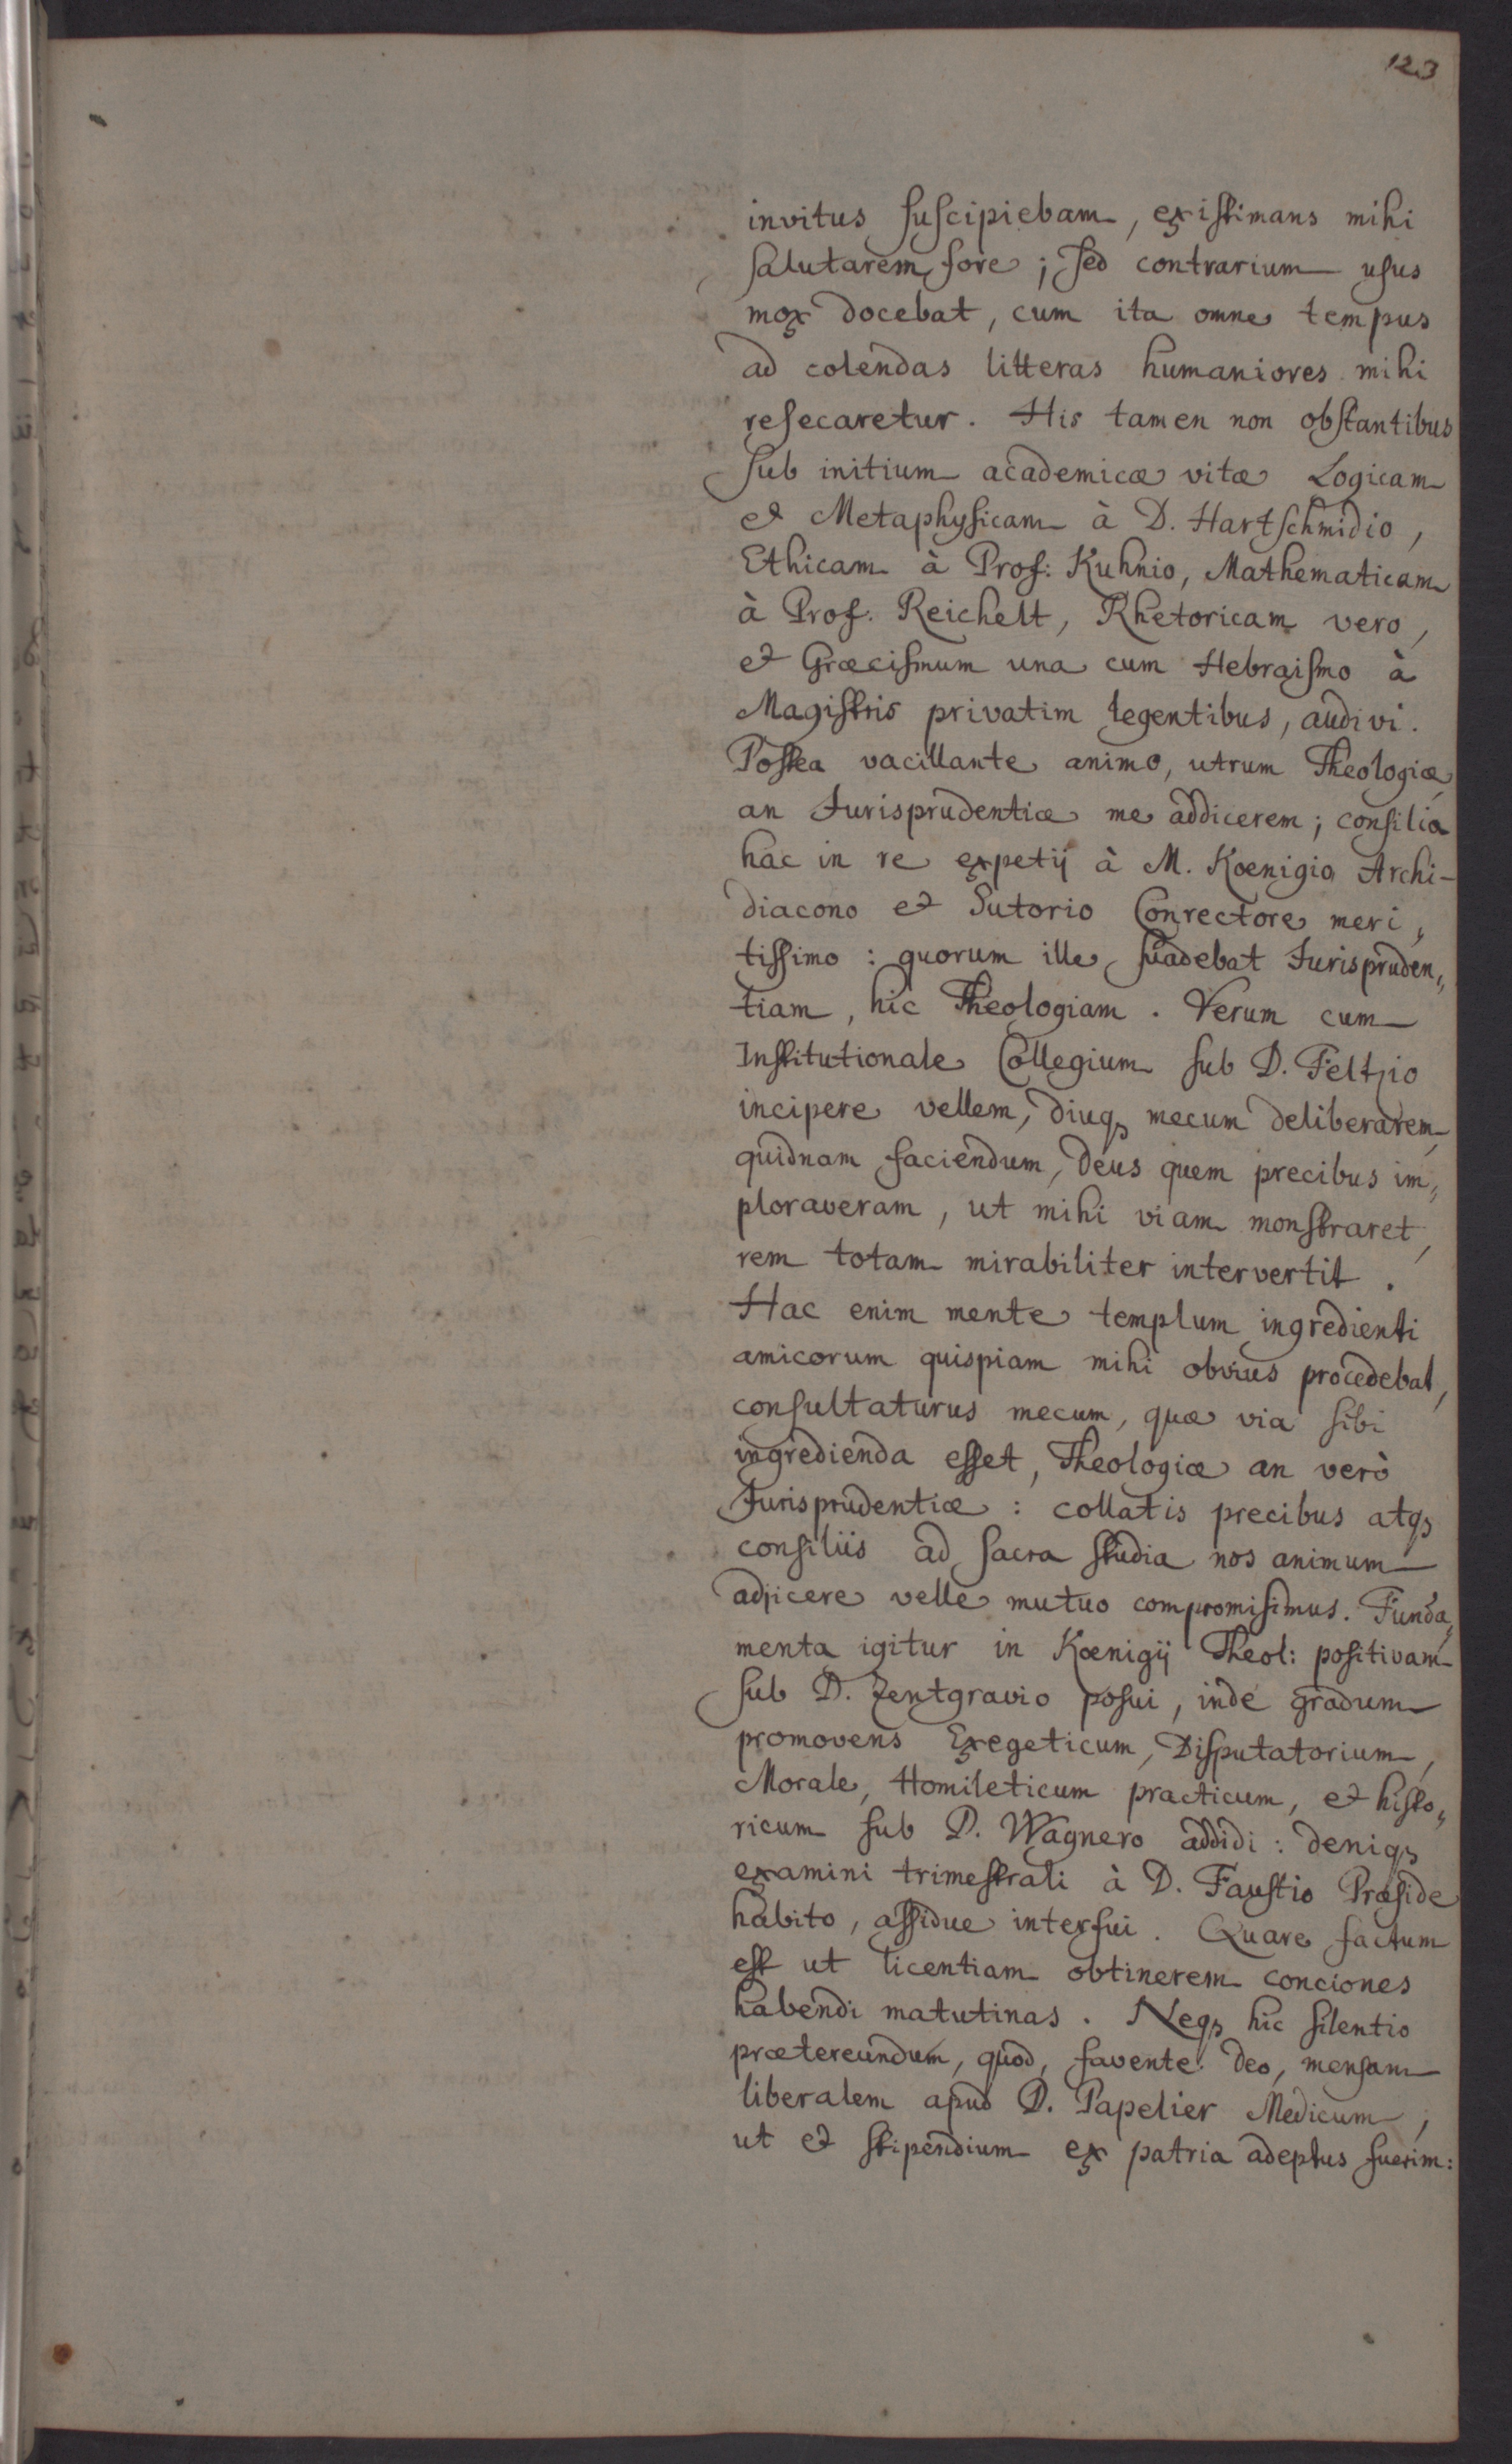 123
invitus suscipiebam, existimans mihi
salutarem fore; sed contrarium usus
mox docebat, cum ita omne tempus
ad colendas litteras humaniores mihi
resecaretur. His tamen non obstantibus
sub initium academicæ vitæ Logicam
et Metaphysicam à D. Hartschmidio,
Ethicam à Prof: Kuhnio, Mathematicam
à Prof. Reichelt, Rhetoricam vero,
et Græcismum una cum Hebraismo à
Magistris privatim legentibus, audivi.
Postea vacillante animo, utrum Theologiæ,
an Jurisprudentiæ me addicerem; consilia
hac in re expetij à M. Kœnigio Archi-
diacono et Sutorio Conrectore meri„
tissimo: quorum ille suadebat Jurispruden„
tiam, hic Theologiam. Verum cum
Institutionale Collegium sub D. Feltzio
incipere vellem, diuqꝫ mecum deliberarem
quidnam faciendum, Deus quem precibus im„
ploraveram, ut mihi viam monstraret,
rem totam mirabiliter intervertit.
Hac enim mente templum ingredienti
amicorum quispiam mihi obvius procedebat,
consultaturus mecum, quæ via sibi
ingredienda esset, Theologiæ an verò
Jurisprudentiæ: collatis precibus atqꝫ
consiliis ad sacra studia nos animum
adjicere velle mutuo compromisimus. Funda„
menta igitur in Kœnigij Theol: positivam
sub D. Zentgravio posui, inde gradum
promovens Exegeticum, Disputatorium,
Morale, Homileticum practicum, et histo„
ricum sub D. Wagnero addidi: deniqꝫ
examini trimestrali à D. Faustio Præside
habito, assidue interfui. Quare factum
est ut licentiam obtinerem conciones
habendi matutinas. Neqꝫ hic silentio
prætereundum, quod, favente Deo, mensam
liberalem apud D. Papelier Medicum,
ut et stipendium ex patria adeptus fuerim: